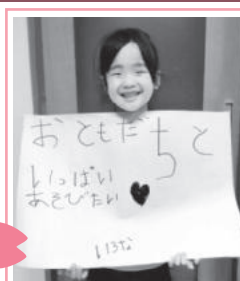 おともだちと
いっぱい
あそびたい♥
いろな